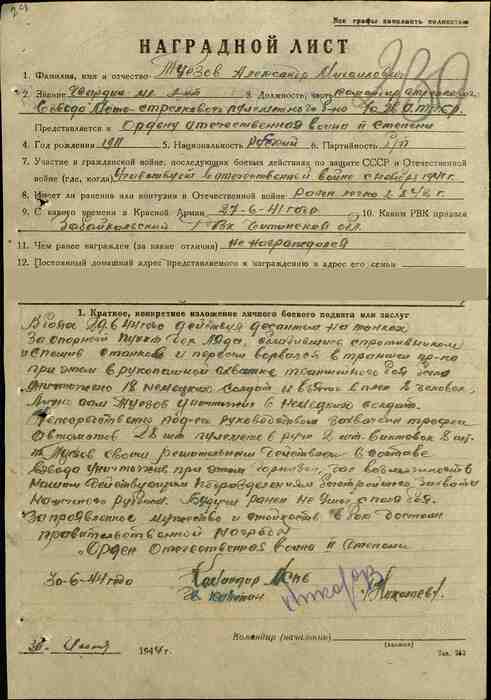 29
Все графы заполнять полностью
330
НАГРАДНОЙ ЛИСТ
1. Фамилия, имя и отчество Туезов Александр Михайлович
2. Звание Гвардии мл. л-нт 3. Должность, часть Командир стрелкового
взвода Мото-стрелкового пулеметного б-на
Представляется к Ордену отечественная война II степени
4. Год рождения 1911 5. Национальность Русский 6. Партийность Б/П
7. Участие в гражданской войне, последующих боевых действиях по защите СССР и Отечественной
войне (где, когда) Участвует в отечественной войне с ноября 1941 г.
8. Имеет ли ранения или контузии в Отечественной войне Ранен легко
9. С какого времени в Красной Армии 27-6-41 года 10. Каким РВК призван
Забайкальский РВК Читинской обл.
11. Чем ранее награжден (за какие отличия) Не награждался
12. Постоянный домашний адрес представляемого к награждению и адрес его семьи
1. Краткое, конкретное изложение личного боевого подвига или заслуг
В боях 29.6.44 года действуя десантом на танках
За опорный пункт сблизившись с противником
и спешив с танков и первым ворвался в траншеи пр-ка
при этом в рукопашной схватке траншейного боя было
Уничтожено 18 немецких солдат и взято в плен 8 человек,
Лично сам Туезов уничтожил 6 немецких солдат.
под его руководством захвачен трофеи
Автоматов пулемета в руч. 2 шт. винтовок 8 шт.
Туезов своим решительным действием в составе
взвода Уничтожив при этом гарнизон, дав возможность
нашим действующим подразделениям захвата
намеченного рубежа. Будучи ранен не ушел с поля боя.
За проявленное мужество и стойкость в бою достоин
правительственной награды
„Орден Отечественная война II Степени
30-6-44 года Командир МСПБ
Гв. капитан Николаев
Командир (начальник)
(подпись)
30 Июня 1944 г.